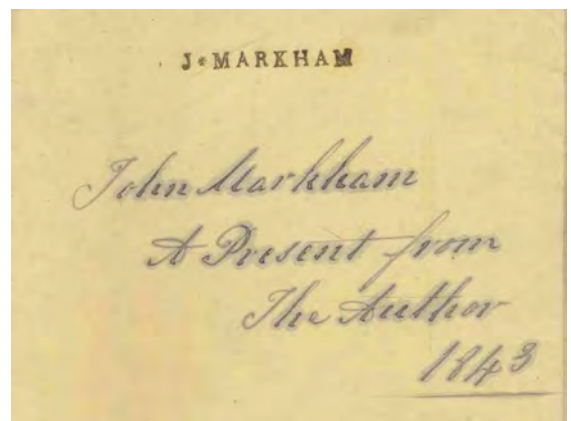 J. MARKHAM
John Markham
A Present from
The Author
1843